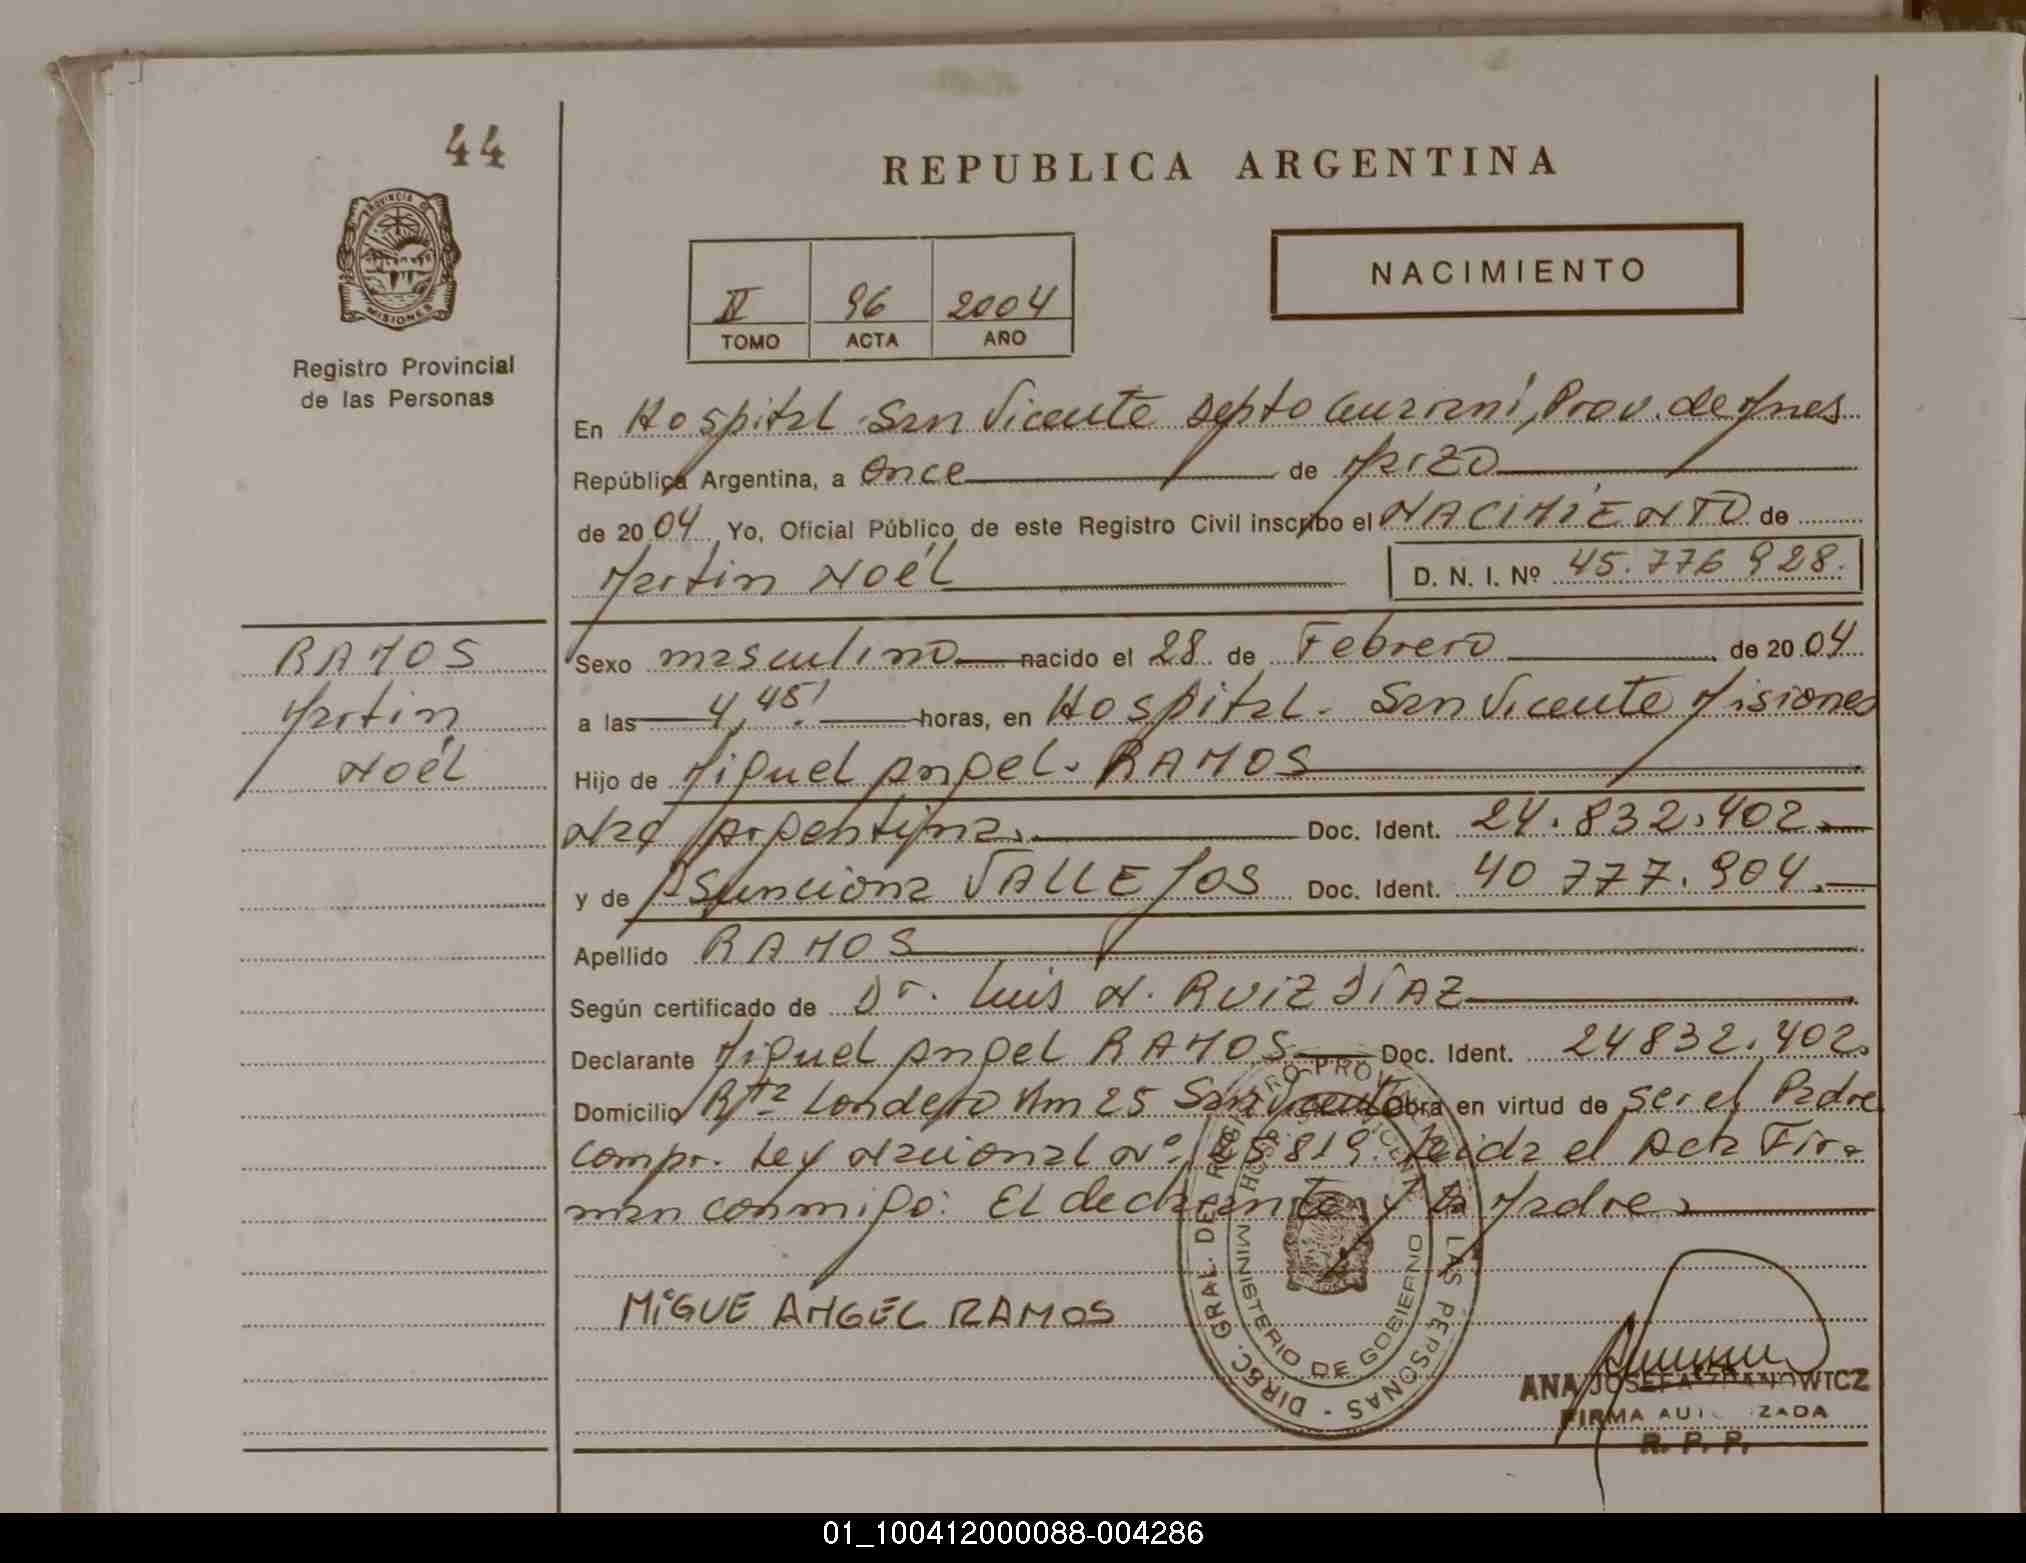 44
REPUBLICA ARGENTINA
PROVINCIA DE
MISIONES
Registro Provincial
de las Personas
II 96 2004
TOMO ACTA AÑO
NACIMIENTO
En Hospital San Vicente Depto Guaraní, Prov. de Mnes
República Argentina, a Once de Marzo
de 20 04 Yo, Oficial Público de este Registro Civil inscribo el NACIMIENTO de
Martin Noél D. N. I. Nº 45.776 928.
RAMOS
Martin
Noél
Sexo masculino nacido el 28 de Febrero de 20 04
a las 4,45' horas, en Hospital San Vicente Misiones
Hijo de Miguel Angel RAMOS
Nac Argentina. Doc. Ident. 24.832.402.
y de Asunciona VALLEJOS Doc. Ident. 40 777.904.
Apellido RAMOS
Según certificado de Dr. Luis N. RUIZ DÍAZ
Declarante Miguel Angel RAMOS Doc. Ident. 24832.402.
Domicilio Rta Londero Km 25 San Vicente Obra en virtud de ser el Padre
Compr. Ley Nacional Nº 25819. Leida el Acta Fir=
man conmigo: El declarante y la Madre
MiGUE ANGEL RAMOS
DIREC. GRAL. DEL REGISTRO PROV. DE LAS PERSONAS -
MINISTERIO DE GOBIERNO
HOSP. SAN VICENTE
ANA JOSEFA
FIRMA AUTORIZADA
R. P. P.
01_100412000088-004286